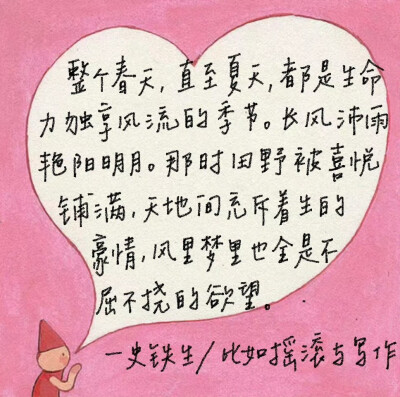 整个春天,直至夏天,都是生命
力独享风流的季节。长风沛雨
艳阳明月。那时田野被喜悦
铺满,天地间充斥着生的
豪情,风里梦里也全是不
屈不挠的欲望。
—史铁生/比如摇滚与写作